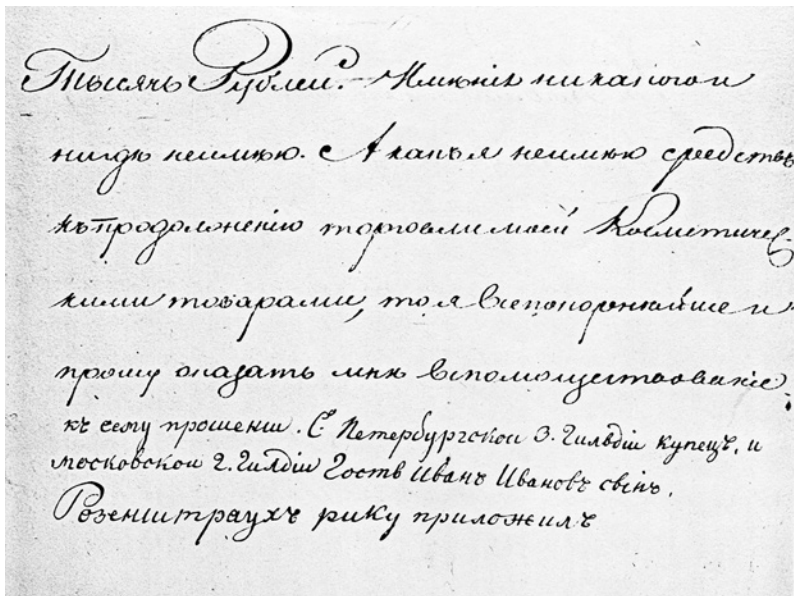 Тысячь Рублей. Имѣнія никакого и
нигдѣ неимѣю. А какъ я неимѣю средствъ
къ продолженію торговли моей Косметичес-
кими товарами, то я всепокорнѣйше и
прошу оказать мнѣ вспомоществованіе.
къ сему прошени. С Петербургскои 3. Гилвдіи купецъ. и
московскои 2. Гилдіи Гоств Иванъ Ивановъ свінъ.
Розенштраухъ рику приложилъ